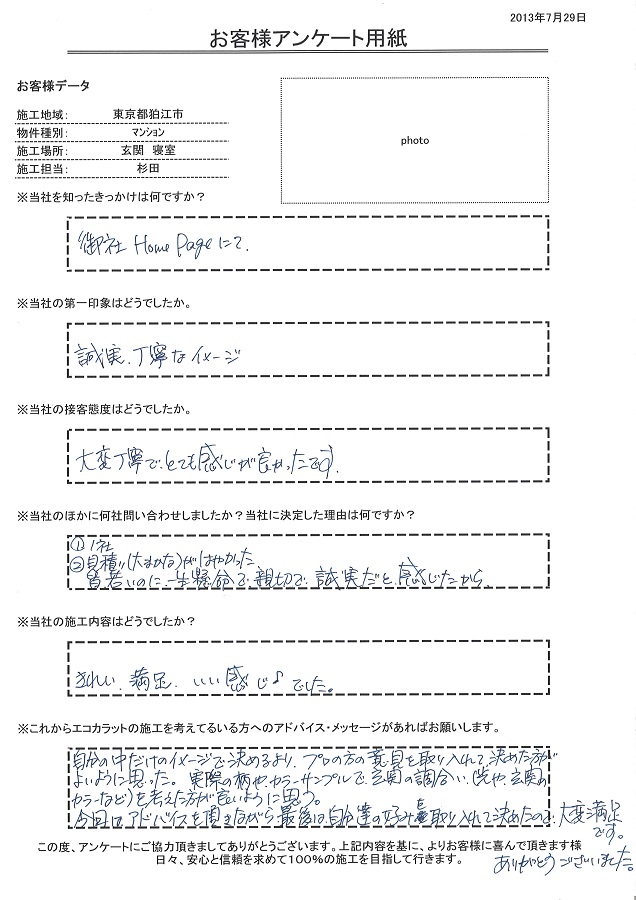 2013年7月29日
お客様アンケート用紙
お客様データ
施工地域: 東京都狛江市
物件種別: マンション
施工場所: 玄関 寝室
施工担当: 杉田
photo
※当社を知ったきっかけは何ですか？
御社 Home Pageにて.
※当社の第一印象はどうでしたか。
誠実、丁寧なイメージ
※当社の接客態度はどうでしたか。
大変丁寧で、とても感じが良かったです.
※当社のほかに何社問い合わせしましたか？当社に決定した理由は何ですか？
① 1社
② 見積り(大まかな)がはやかった
皆若いのに、一生懸命で、親切で、誠実だと感じたから.
※当社の施工内容はどうでしたか？
きれい、満足、いい感じ♪でした。
※これからエコカラットの施工を考えてるいる方へのアドバイス・メッセージがあればお願いします。
自分の中だけのイメージで決めるより、プロの方の意見を取り入れて決めた方が
よいように思った。実際の柄やカラーサンプルで、玄関の調合い、(光や玄関の
カラーなど)を考えた方が良いように思う。
今回はアドバイスを頂きながら、最後は自分達の好みも取り入れて決めたので、大変満足
です。
この度、アンケートにご協力頂きましてありがとうございます。上記内容を基に、よりお客様に喜んで頂きます様
日々、安心と信頼を求めて100%の施工を目指して行きます。
ありがとうございました。